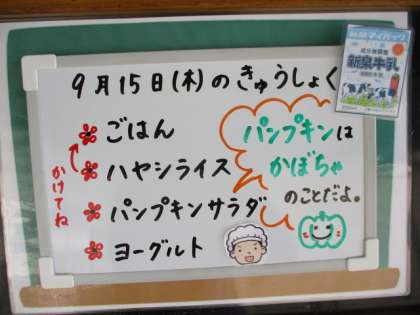 9月15日(木)のきゅうしょく
ごはん
ハヤシライス
かけてね
パンプキンサラダ
ヨーグルト
パンプキンは
かぼちゃ
のことだよ。
新泉牛乳